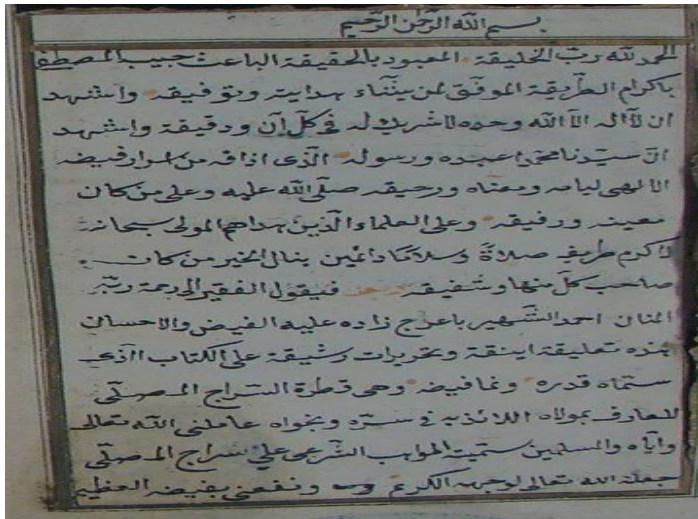 بسم الله الرحمن الرحيم
الحمد لله رب الخليقة المعبود بالحقيقة الباعث حبيبه المصطفى
باكرام الطريقة الموفق لمن يشاء بهدايته وتوفيقه واشهد
ان لا اله الا الله وحده لا شريك له في كل آن ودقيقة واشهد
ان سيدنا محمدا عبده ورسوله الذي اذاقه من اسرار فيضه
الالهى ومعناه ورحيقه صلى الله عليه وعلى من كان
معينه ورفيقه وعلى العلماء الذين هداهم المولى سبحانه
لاكرم طريقه صلاة وسلاما دائمين ينال الخير من كان
صاحب كل منها وشفيقه فيقول الفقير الى رحمة ربه
المنان احمد الشهير باعرج زاده عليه الفيض والاحسان
هذه تعليقة انيقة وتحريرات رشيقة على الكتاب الذى
وهى قطرة السراج المصلى
للعارف بمولاه اللائذ به في سره ونجواه عاملنى الله تعالى
واياه والمسلمين سميت المواهب الشرعى على سراج المصلى
جعله الله تعالى لوجهه الكريم ونفعنى بفيضه العظيم